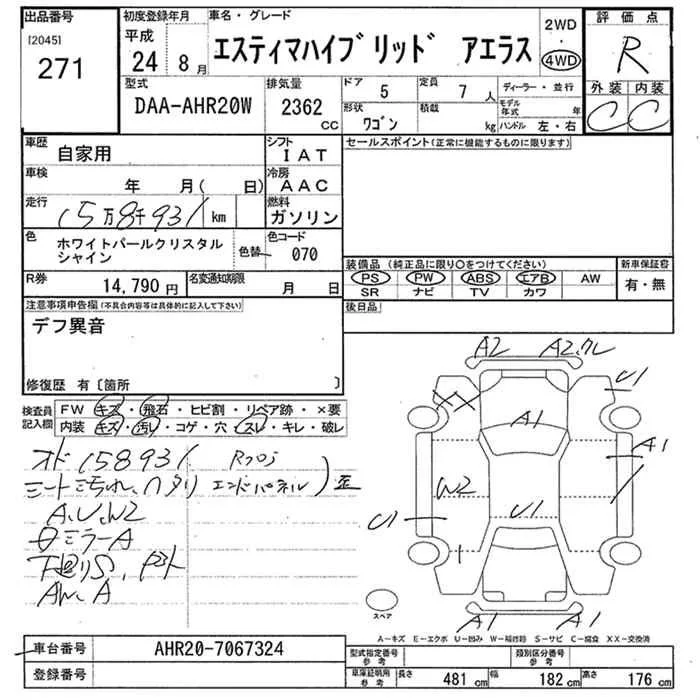 出品番号
[2045]
271
初度登録年月
平成
24 8月
車名・グレード
エスティマハイブリッド アエラス
2WD
・
4WD
評価点
R
外装 内装
C C
型式
DAA-AHR20W
排気量
2362
CC
ドア
5
定員
7 人
形状
ワゴン
積載
kg
ディーラー・並行
モデル年式 年
ハンドル 左・右
車歴
自家用
シフト
IAT
車検
年 月( 日)
冷房
AAC
走行
15万8千931 km
燃料
ガソリン
色
ホワイトパールクリスタル
シャイン
色替
色コード
070
R券
14,790 円
名変通知期限
月 日
セールスポイント(正常に機能するものに限ります)
装備品 (純正品に限り○をつけてください)
PS PW ABS エアB AW
SR ナビ TV カワ
新車保証書
有・無
後日品
注意事項申告欄(不具合内容等は具体的に記入して下さい)
デフ異音
修復歴 有〔箇所 〕
検査員
記入欄
FW キズ・飛石・ヒビ割・リペア跡・×要
内装 キズ・汚レ・コゲ・穴・スレ・キレ・破レ
オド158931
シート汚れ、ヘタリ
A、U、W2
ミラーA
AW、A
Rフロア
エンドパネル 歪
A2
A2
U1
XX
A1
A1
W2
U1
U1
A1
A1
スペア
A-キズ E-エクボ U-凹み W-補修跡 S-サビ C-腐食 XX-交換済
車台番号
AHR20-7067324
登録番号
型式指定番号
参考
類別区分番号
参考
車庫証明用
参考
長さ 481 cm 幅 182 cm 高さ 176 cm